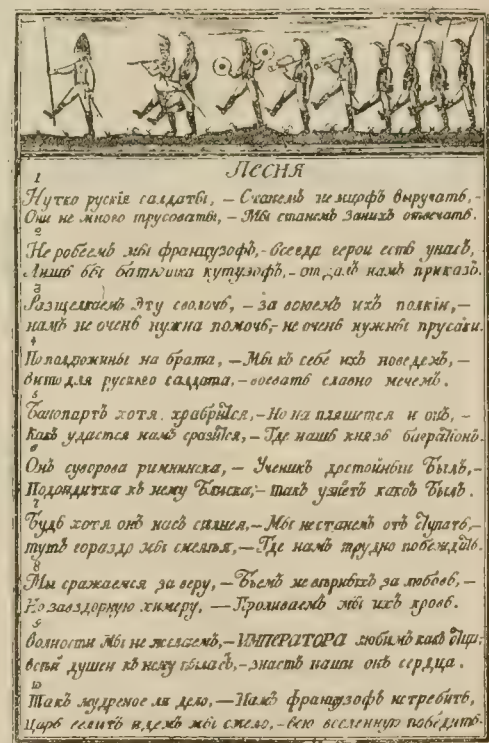 Песня
1
Нутко руския салдаты, – Станемъ немцоф выручать, –
Они не много трусоваты, – Мы станемъ заних отвечать.
2
Не робеемъ мы французоф, – всегда герои есть унасъ,
Лишь бы батюшка кутузоф, – отдалъ намъ приказъ.
3
Разщелкаемъ эту сволочь, – за воюемъ ихъ полки, –
намъ не очень нужна помочь, – не очень нужны прусаки.
4
По полдюжины на брата, – Мы къ себе ихъ поведемъ, –
вить для рускаго салдата, – воевать славно мечемъ.
5
Банопартъ хотя храбрится, – Но на пляшется и онъ, –
Какъ удастся намъ сразится, – Где нашъ князь багратионъ.
6
Онъ суворова римнинска, – Ученикъ достойный былъ, –
Подойдитка къ нему блиска, – такъ узнетъ каковъ былъ.
7
Будь хотя онъ насъ силнея, – Мы нестанемъ отъ ступать, –
тутъ гораздо мы смелья, – Где намъ трудно побеждать.
8
Мы сражаемся за веру, – Бьемъ не верныхъ за любовь, –
Но завздорную химеру, – Проливаемъ мы ихъ кровь.
9
Волности мы не желаемъ, – ИМПЕРАТОРА любимъ какъ отца,
всей душей къ нему, – знаетъ наши онъ сердца.
10
Такъ мудреное ли дело, – Намъ французофъ истребить,
Царь велитъ идемъ мы смело, – всю вселенную победить.